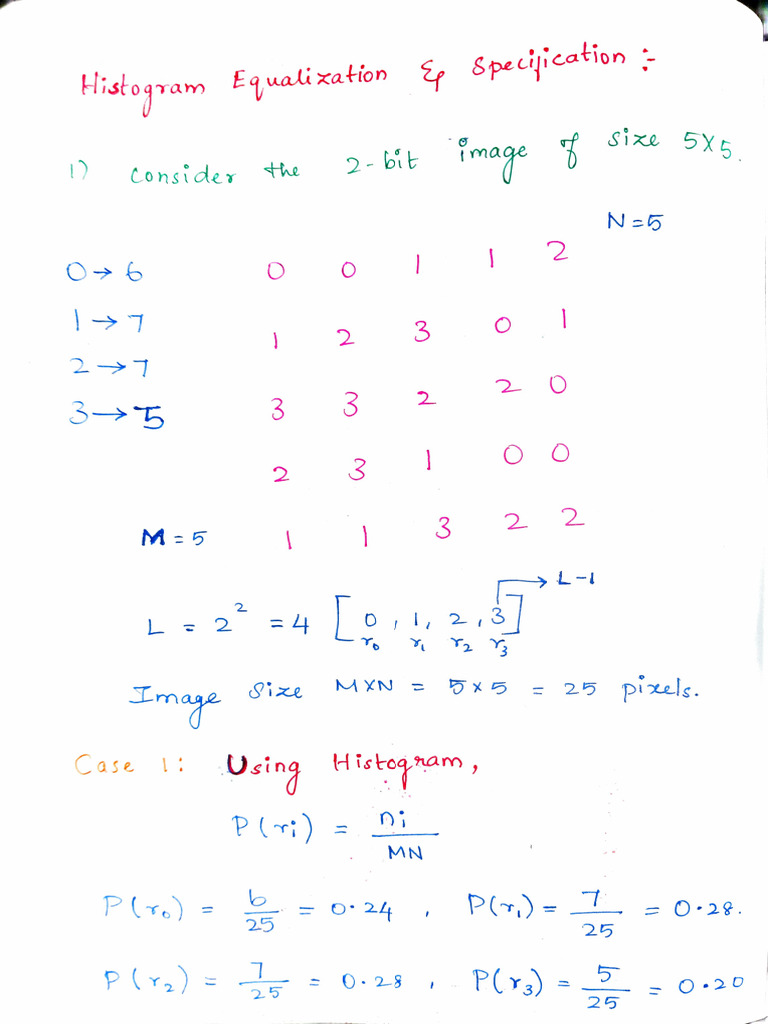 Histogram Equalization & Specification :-
1) Consider the 2-bit image of size 5X5.
N=5
0→6 0 0 1 1 2
1→7 1 2 3 0 1
2→7
3→5 3 3 2 2 0
2 3 1 0 0
M=5 1 1 3 2 2
L = 2² = 4 [0, 1, 2, 3] → L-1
r₀ r₁ r₂ r₃
Image Size MXN = 5×5 = 25 pixels.
Case 1: Using Histogram,
P(ri) = ni/MN
P(r₀) = 6/25 = 0.24 , P(r₁) = 7/25 = 0.28.
P(r₂) = 7/25 = 0.28 , P(r₃) = 5/25 = 0.20